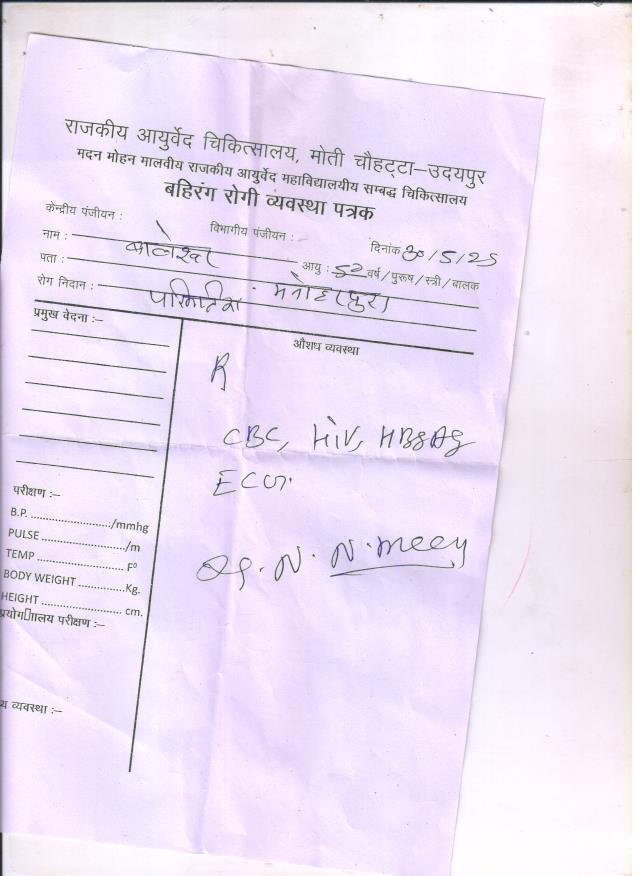 राजकीय आयुर्वेद चिकित्सालय, मोती चौहट्टा–उदयपुर
मदन मोहन मालवीय राजकीय आयुर्वेद महाविद्यालयीय सम्बद्ध चिकित्सालय
बहिरंग रोगी व्यवस्था पत्रक
केन्द्रीय पंजीयन : विभागीय पंजीयन : दिनांक 30/5/25
नाम : आयु : 52 वर्ष/पुरूष/स्त्री/बालक
पता :
रोग निदान :
प्रमुख वेदना :– औशध व्यवस्था
R
CBC, HiV, HBsAg
ECG.
परीक्षण :–
B.P. ........................./mmhg
PULSE ............................/m
TEMP ......................... F⁰
BODY WEIGHT .............Kg.
HEIGHT ....................... cm.
प्रयोग▯ालय परीक्षण :–
य व्यवस्था :–